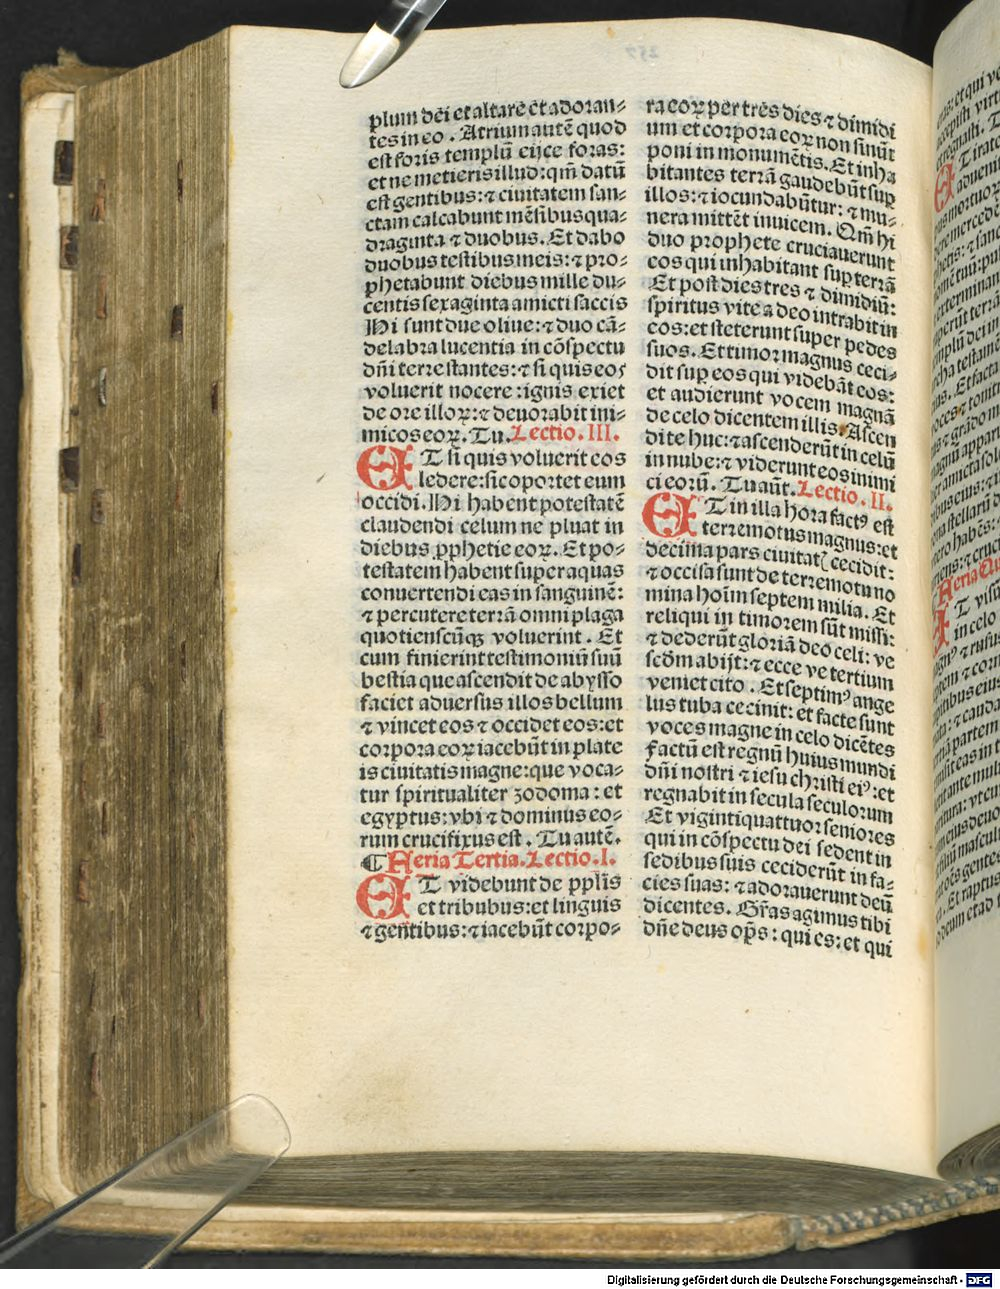 plum dẽi et altare et adoran⸗
tes in eo . Atrium autẽ quod
est foris templũ eijce foras:
et ne metieris illud: qm̃ datũ
est gentibus: ⁊ ciuitatem san⸗
ctam calcabunt mẽsibus qua⸗
draginta ⁊ duobus. Et dabo
duobus testibus meis: ⁊ pro⸗
phetabunt diebus mille du⸗
centis sexaginta amicti saccis
Hi sunt due oliue: ⁊ duo cã⸗
delabra lucentia in cõspectu
dñi terre stantes: ⁊ si quis eos
voluerit nocere : ignis exiet
de ore illoꝝ: ⁊ deuorabit ini⸗
micos eoꝝ. Tu. Lectio. III.
ET si quis voluerit eos
ledere: sic oportet eum
occidi. Hi habent potestatẽ
claudendi celum ne pluat in
diebus ꝓphetie eoꝝ. Et po⸗
testatem habent super aquas
conuertendi eas in sanguinẽ:
⁊ percutere terrã omni plaga
quotienscũqꝫ voluerint . Et
cum finierint testimoniũ suũ
bestia que ascendit de abysso
faciet aduersus illos bellum
⁊ vincet eos ⁊ occidet eos: et
corpora eoꝝ iacebũt in plate
is ciuitatis magne: que voca⸗
tur spiritualiter zodoma : et
egyptus: vbi ⁊ dominus eo⸗
rum crucifixus est . Tu autẽ.
¶ Feria Tertia. Lectio. I.
ET videbunt de pplĩs
et tribubus: et linguis
⁊ gentibus: ⁊ iacebũt corpo⸗
ra eoꝝ per tres dies ⁊ dimidi
um et corpora eoꝝ non sinũt
poni in monumẽtis. Et inha
bitantes terrã gaudebũt suꝑ
illos: ⁊ iocundabũtur: ⁊ mu⸗
nera mittẽt inuicem. Qm̃ hi
duo prophete cruciauerunt
eos qui inhabitant suꝑ terrã
Et post dies tres ⁊ dimidiũ:
spiritus vite a deo intrabit in
eos: et steterunt super pedes
suos. Et timor magnus ceci⸗
dit suꝑ eos qui videbãt eos:
et audierunt vocem magnã
de celo dicentem illis. Ascen
dite huc: ⁊ ascenderũt in celũ
in nube: ⁊ viderunt eos inimi
ci eorũ. Tu aũt. Lectio. II.
ET in illa hora factꝰ est
terremotus magnus: et
decima pars ciuitatꝭ cecidit:
⁊ occisa sunt de terremotu no
mina hoĩm septem milia. Et
reliqui in timorem sũt missi:
⁊ dederũt gloriã deo celi: ve
scd̃m abijt: ⁊ ecce ve tertium
veniet cito . Et septimꝰ ange
lus tuba cecinit: et facte sunt
voces magne in celo dicẽtes
factũ est regnũ huius mundi
dñi nostri ⁊ iesu christi eiꝰ: et
regnabit in secula seculorum
Et vigintiquattuor seniores
qui in cõspectu dei sedent in
sedibus suis ceciderũt in fa⸗
cies suas: ⁊ adorauerunt deũ
dicentes. Gr̃as agimus tibi
dñe deus op̃s : qui es: et qui
Digitalisierung gefördert durch die Deutsche Forschungsgemeinschaft - DFG